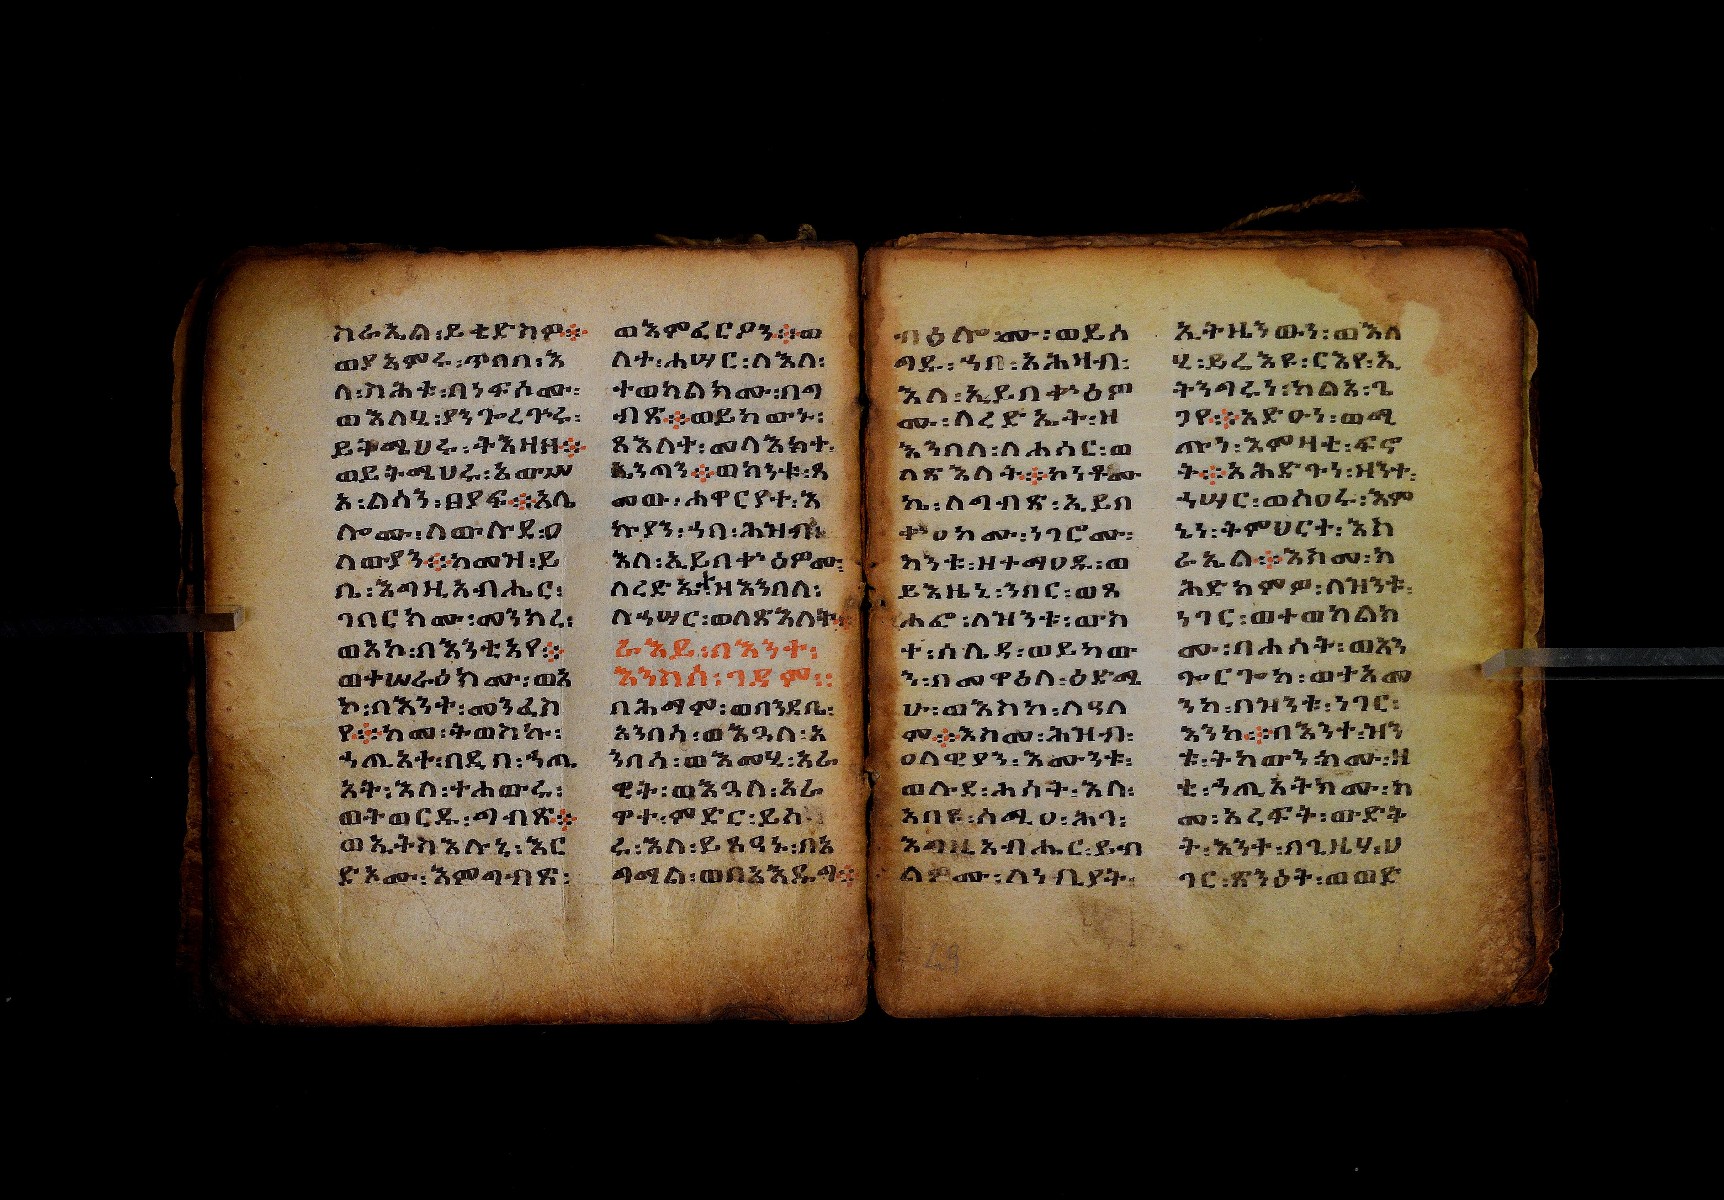 ስራኤል፡ይቲድከም።
ወያአምሩ፡ጥበበ፡እ
ለ፡ስሕቱ፡በነፍሶሙ፡
ወእለሂ፡ያንጐረጕሩ፡
ይትሜሀሩ፡ትእዛዘ።
ወይትሜሀሩ፡አውሥ
አ፡ልሳን፡ፀያፍ።አሌ
ሎሙ፡ለውሉደ፡ዐ
ለውያን።ከመዝ፡ይ
ቤ፡እግዚአብሔር፡
ገበርክሙ፡መንክረ፡
ወአኮ፡በእንቲአየ።
ወተሠራዕክሙ፡ወአ
ኮ፡በእንተ፡መንፈስ
የ።ከመ፡ትወስኩ፡
ኀጢአተ፡በዲበ፡ኀጢ
አት፡እለ፡ተሐውሩ፡
ወትወርዱ፡ግብጽ።
ወኢትስእሉኒ፡እር
ድኦሙ፡እምግብጽ፡
ወእምፈርዖን።ወ
ለተ፡ሐሣር፡ለእለ፡
ተወከልክሙ፡በግ
ብጽ።ወይከውኑ፡
ጸእለት፡መላእክተ፡
ጺንጣን።ወከንቱ፡ጸ
መው፡ሐዋርያተ፡እ
ኩያን፡ኀበ፡ሕዝብ፡
እለ፡ኢይበቍዕዎሙ፡
ለረድኤት፡ዘእንበለ፡
ለኀሣር፡ወለጽእለት።
ራእይ፡በእንተ፡
እንስሳ፡ገዳም።
በሕማም፡ወበንዴቤ፡
አንበሳ፡ወእጓለ፡አ
ንበሳ፡ወእመሂ፡አራ
ዊት፡ወእጓለ፡አራ
ዋተ፡ምድር፡ይስ
ሩ፡እለ፡ይጼዓኑ፡በአ
ግማል፡ወበአእዱግ።
ብዕሎሙ፡ወይሰ
ግዱ፡ኀበ፡አሕዛብ፡
እለ፡ኢይበቍዕዎ
ሙ፡ለረድኤት፡ዘ
እንበለ፡ለሐሳር፡ወ
ለጽእለት።ከንቶሙ
ኬ፡ለግብጽ፡ኢይበ
ቍዐክሙ፡ንገሮሙ፡
ከንቱ፡ዘተማዐዱ፡ወ
ይእዜኒ፡ንበር፡ወጸ
ሐፎ፡ለዝንቱ፡ውስ
ተ፡ሰሌዳ፡ወይከው
ን፡በመዋዕለ፡ዕድሜ
ሁ፡ወእስከ፡ለዓለ
ም።እስመ፡ሕዝብ፡
ዐለዊያን፡እሙንቱ፡
ወሉደ፡ሐሰት፡እለ፡
አበዩ፡ሰሚዐ፡ሕገ፡
እግዚአብሔር፡ይብ
ልዎሙ፡ለነቢያት፡
ኢትዜንውን፡ወእለ
ሂ፡ይሬእዩ፡ርእየ፡ኢ
ትንግሩን፡ካልአ፡ጌ
ጋየ።አድዑን፡ወሚ
ጡን፡እምዛቲ፡ፍኖ
ት።አሕድጉን፡ዘንተ፡
ኀሣር፡ወስዐሩ፡እም
ኔን፡ትምህርተ፡እስ
ራኤል።እስመ፡ክ
ሕድክምዎ፡ለዝንቱ፡
ነገር፡ወተወከልክ
ሙ፡በሐሰት፡ወአን
ጐርጐከ፡ወተአመ
ንከ፡በዝንቱ፡ነገር፡
እንከ።በእንተ፡ዝን
ቱ፡ትከውን፡ክሙ፡ዛ
ቲ፡ኀጢአትክሙ፡ከ
መ፡አረፍት፡ውድት
ት፡እንተ፡በጊዜሃ፡ሀ
ገር፡ጽንዕት፡ወወድ
49